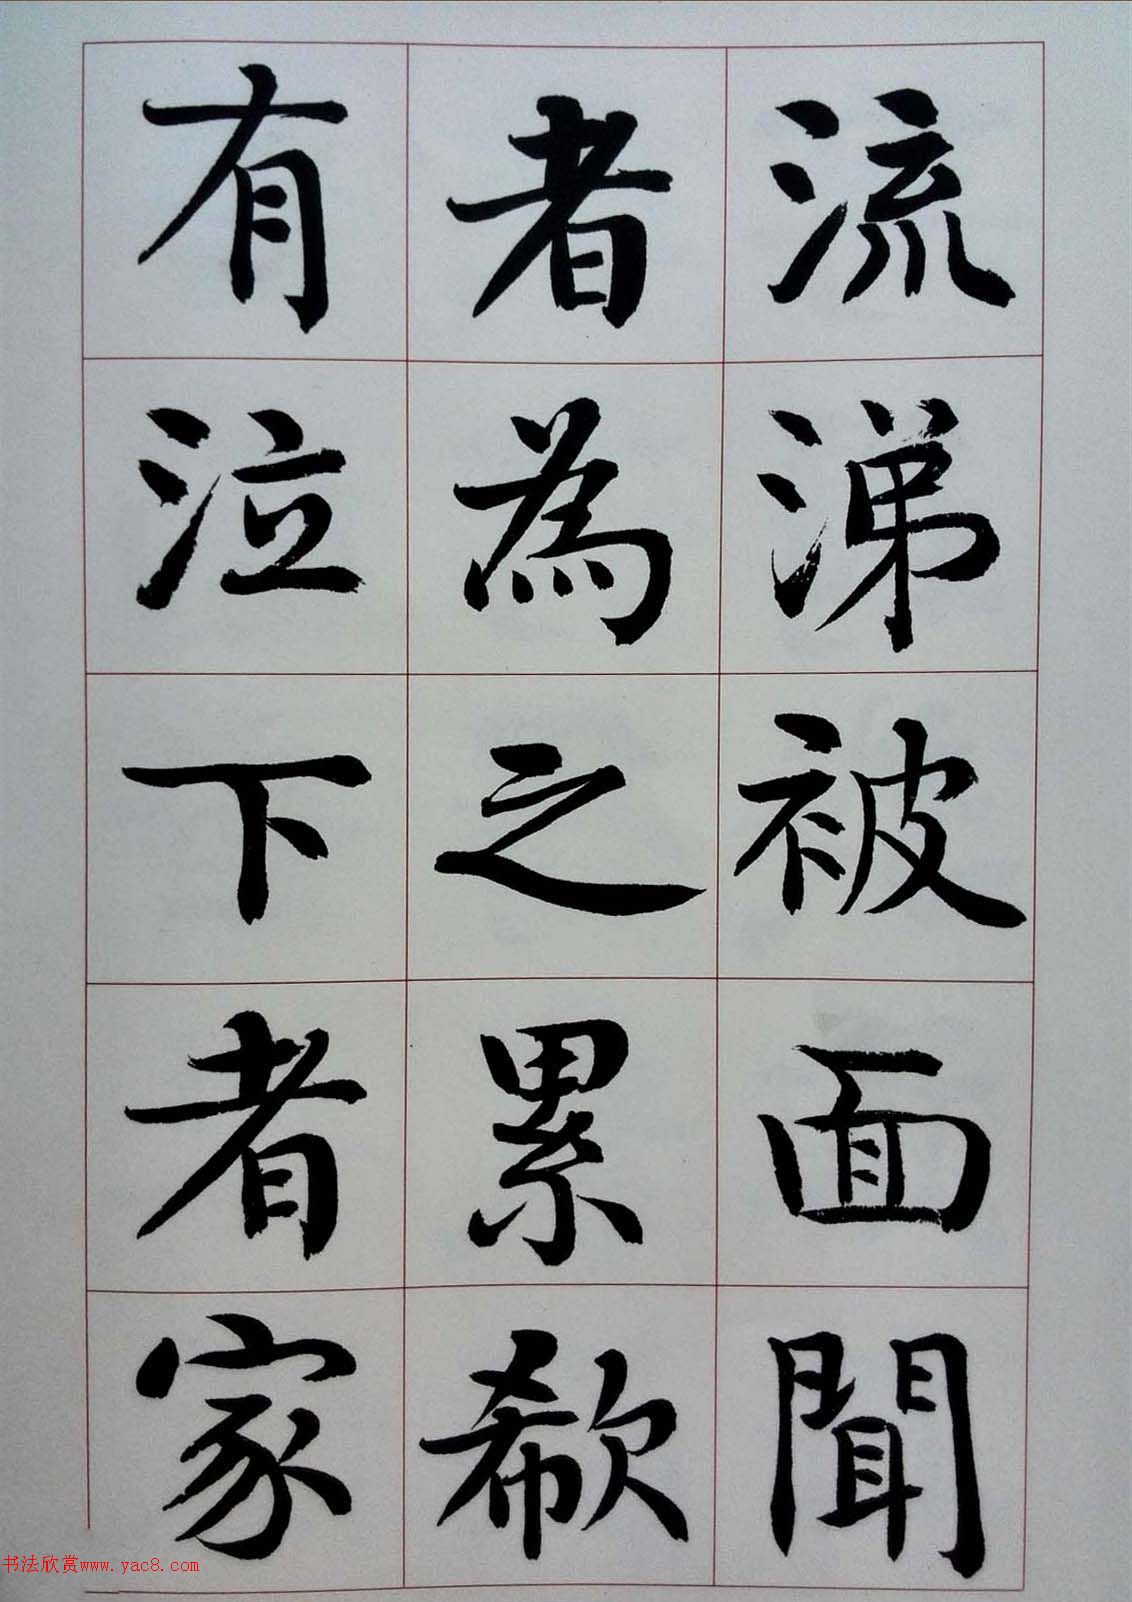 流涕被面聞
者為之累欷
有泣下者家
书法欣赏www.yac8.com